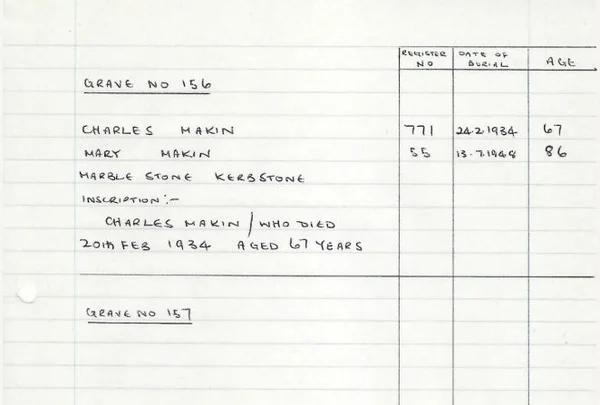 REGISTER NO DATE OF BURIAL AGE
GRAVE NO 156
CHARLES MAKIN 771 24.2.1934 67
MARY MAKIN 55 13.7.1948 86
MARBLE STONE KERBSTONE
INSCRIPTION:-
CHARLES MAKIN / WHO DIED
20th FEB 1934 AGED 67 YEARS
GRAVE NO 157